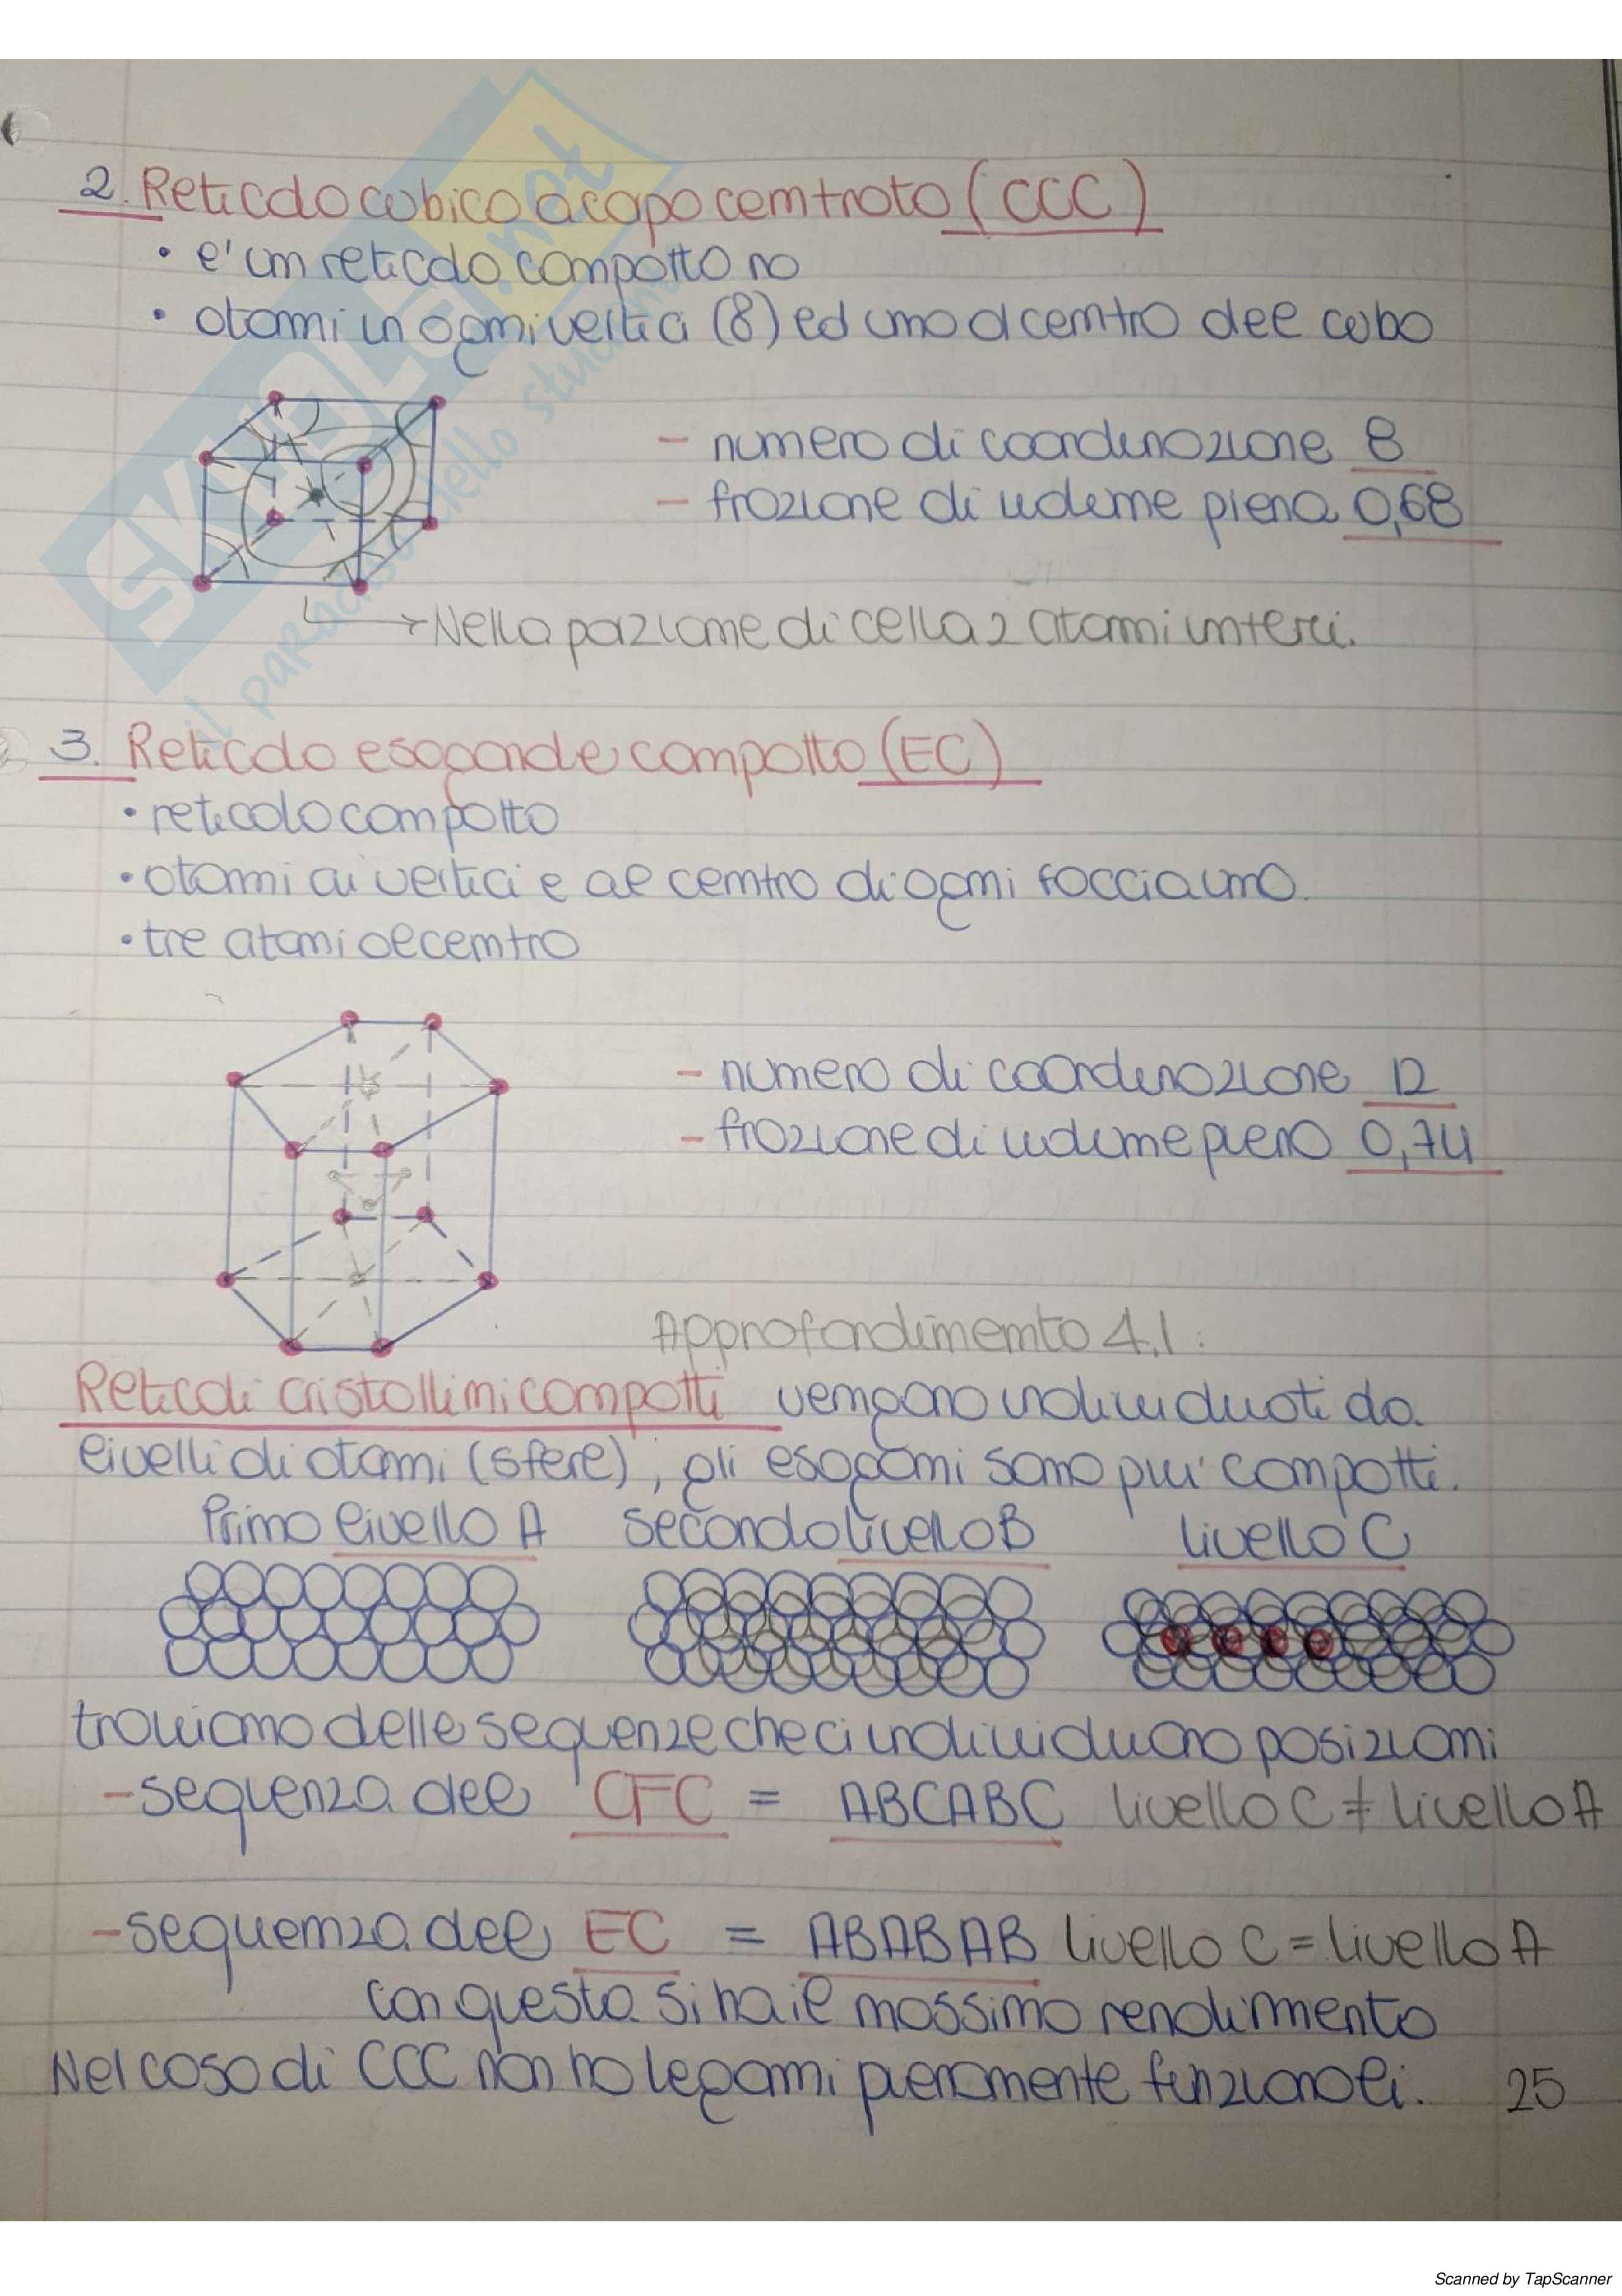 2. Reticolo cubico a capo centrato (CCC)
• e' un reticolo compatto no
• atomi in ogni vertici (8) ed uno al centro del cubo
- numero di coordinazione 8
- frazione di volume piena 0,68
Nella porzione di cella 2 atomi interi.
3. Reticolo esagonale compatto (EC)
• reticolo compatto
• atomi ai vertici e al centro di ogni faccia uno.
• tre atomi al centro
- numero di coordinazione 12
- frazione di volume pieno 0,74
Approfondimento 4.1:
Reticoli cristallini compatti vengono individuati da
livelli di atomi (sfere), gli esagoni sono piu' compatti.
Primo livello A secondo livello B livello C
troviamo delle sequenze che ci individuano posizioni
- sequenza del CFC = ABCABC livello C ≠ livello A
- sequenza del EC = ABABAB livello C = livello A
con questa si ha il massimo rendimento
Nel caso di CCC non ho legami pienamente funzionali. 25
SKUOLA.net
il paradiso dello studente
Scanned by TapScanner